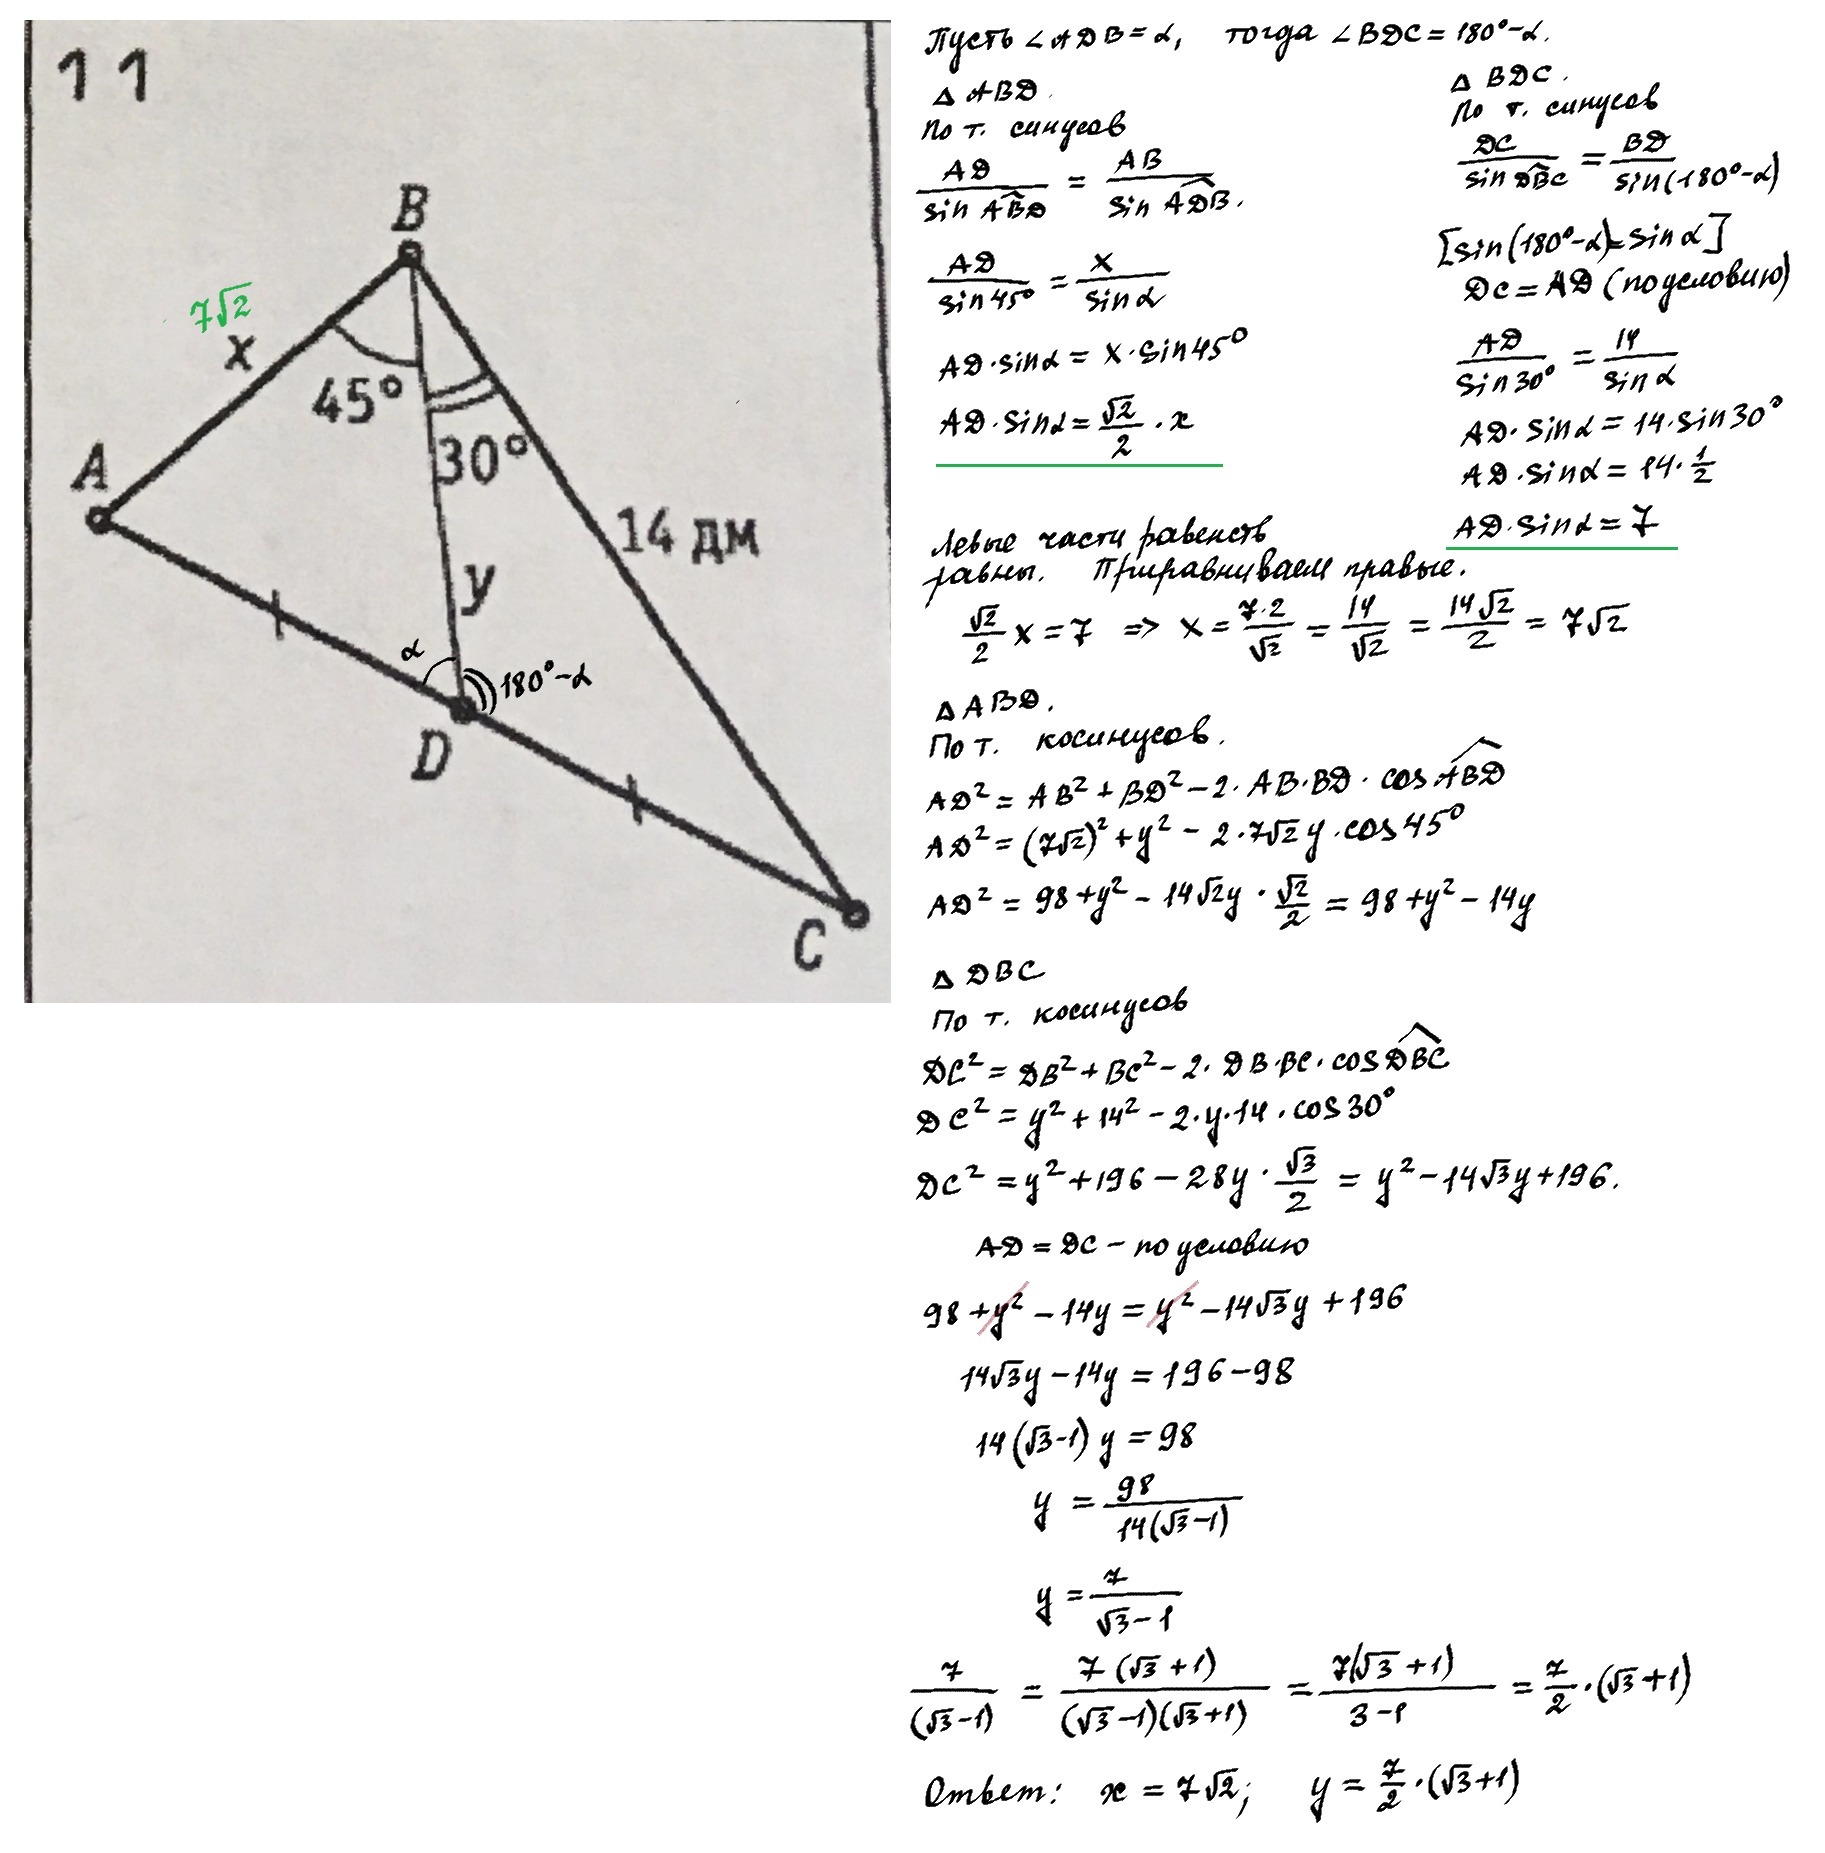 11
B
7√2
x
45°
A
30°
14 дм
y
α
180°-α
D
C
Пусть ∠ADB = α, тогда ∠BDC = 180°-α.
△ ABD.
По т. синусов
AD/sin ABD = AB/sin ADB.
AD/sin 45° = x/sin α
AD·sin α = x·sin 45°
AD·sin α = √2/2 · x
△ BDC.
По т. синусов
DC/sin DBC = BD/sin(180°-α)
[sin(180°-α)=sin α]
DC = AD (по условию)
AD/sin 30° = 14/sin α
AD·sin α = 14·sin 30°
AD·sin α = 14·1/2
AD·sin α = 7
Левые части равенств
равны. Приравниваем правые.
√2/2 x = 7 => x = 7·2/√2 = 14/√2 = 14√2/2 = 7√2
△ ABD.
По т. косинусов.
AD² = AB² + BD² - 2·AB·BD·cos ABD
AD² = (7√2)² + y² - 2·7√2 y·cos 45°
AD² = 98 + y² - 14√2y · √2/2 = 98 + y² - 14y
△ DBC
По т. косинусов
DC² = DB² + BC² - 2·DB·BC·cos DBC
DC² = y² + 14² - 2·y·14·cos 30°
DC² = y² + 196 - 28y · √3/2 = y² - 14√3y + 196.
AD = DC - по условию
98 + y² - 14y = y² - 14√3y + 196
14√3y - 14y = 196 - 98
14(√3-1) y = 98
y = 98/14(√3-1)
y = 7/√3-1
7/(√3-1) = 7(√3+1)/(√3-1)(√3+1) = 7(√3+1)/3-1 = 7/2·(√3+1)
Ответ: x = 7√2; y = 7/2·(√3+1)